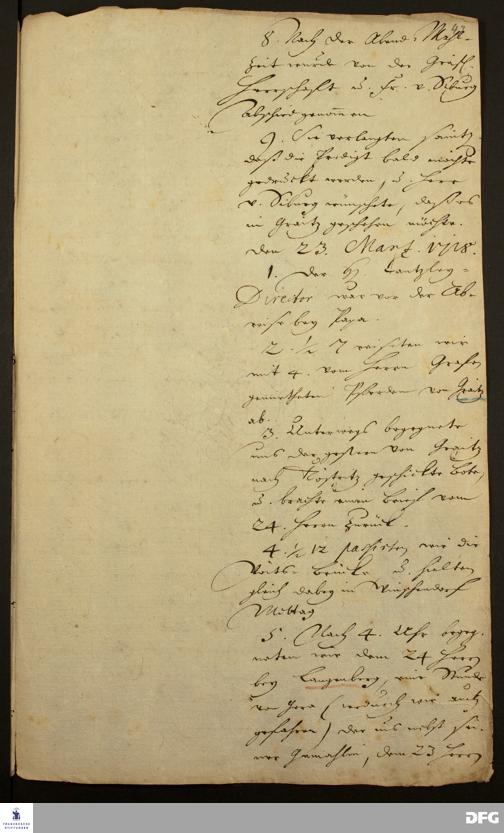 8. Nach der Abend-Mahl-
zeit wurde von der Gräfl.
Herrschafft u. Fr. v. Siburg
Abschied genommen
9. Sie verlangten sämtl.
daß die Predigt bald möchte
gedruckt werden, u. Herr
v. Siburg wünschete, daß es
in Graitz geschehen möchte.
den 23. Martz. 1718.
1. Der H. Cantzley-
Director war vor der Ab-
reise bey Papa.
2. ½ 7 reiseten wir
mit 4. vom Herrn Grafen
gemietheten Pferden von Graitz
ab.
3. Unterwegs begegnete
uns der gestern von Graitz
nach Köstritz geschickte Bote,
u. brachte einen Brief vom
24. Herrn zurück.
4. ½ 12 passirten wir die
Veits-Brücke u. hielten
gleich dabey in Wünschendorf
Mittag
5. Nach 4. Uhr begeg-
neten wir dem 24 Herrn
bey Langenberg, eine Stunde
von Gera (wodurch wir auch
gefahren) der uns nebst sei-
ner Gemahlin, dem 23 Herrn
FRANCKESCHE STIFTUNGEN
DFG